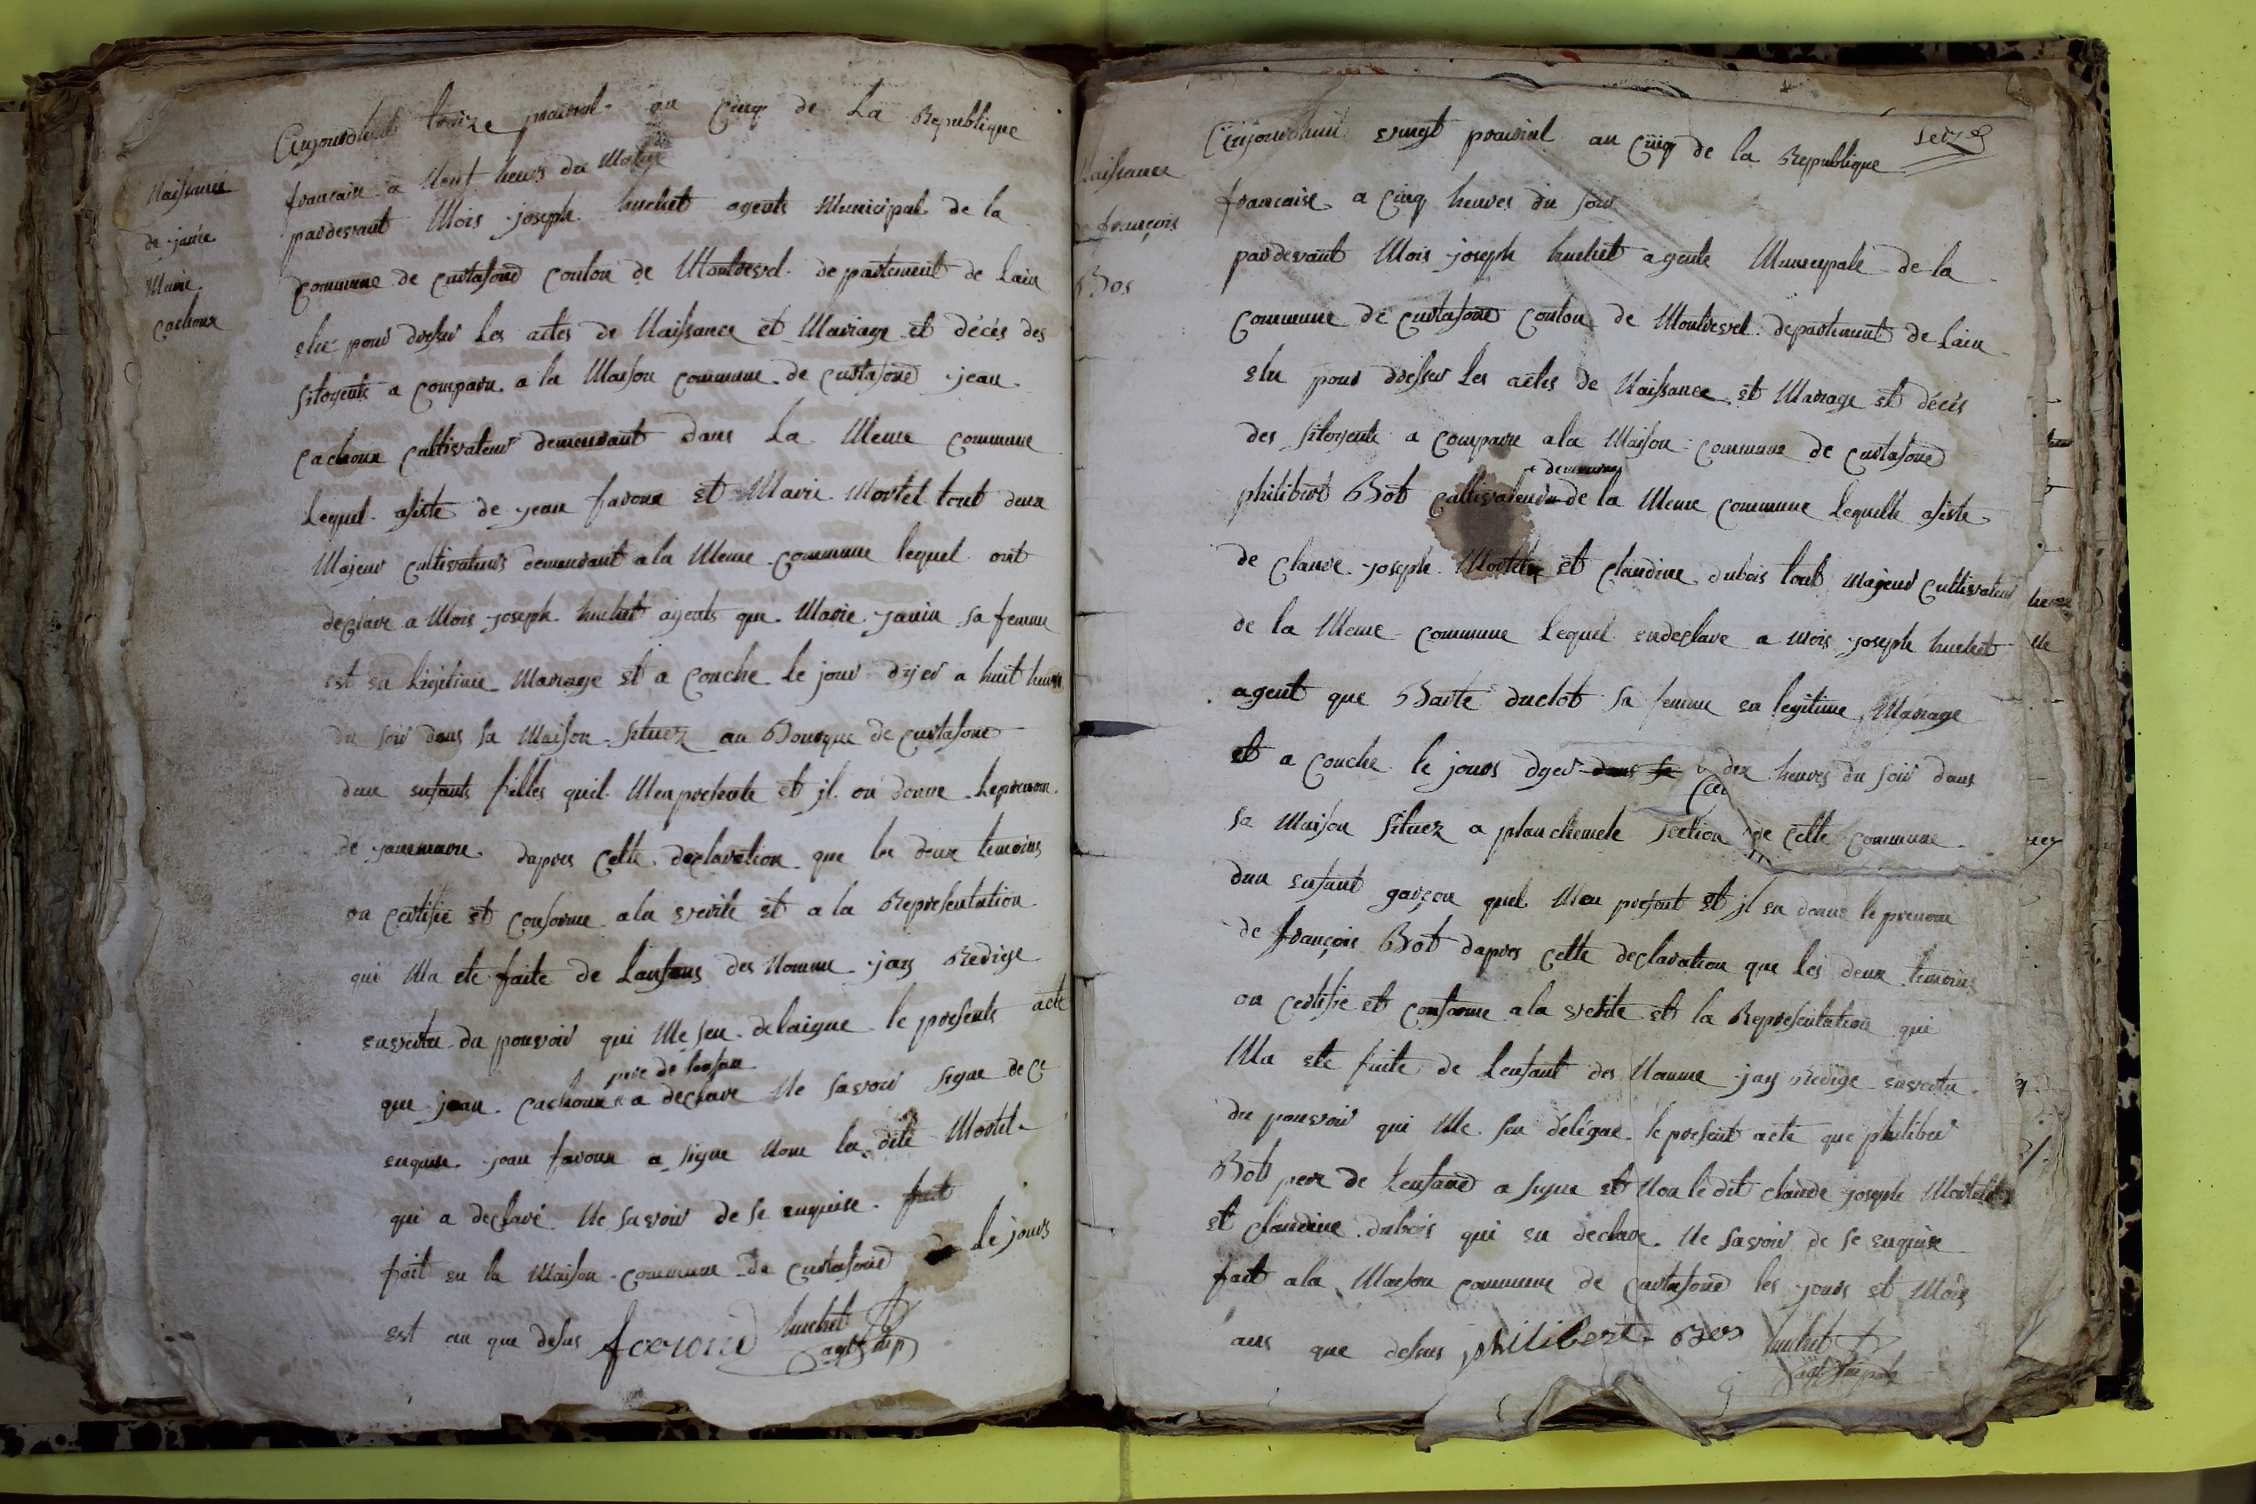 Naissance
de janne
Marie
cachoux
Aujourdhui traize prairial an Cinq de La Republique
francaise a Neuf heurs du Matin
pardevant Mois joseph huchet agents Municipal de la
Commune de Curtafond Conton de Montrevel departement de Lain
elu pour dresser Les actes de Naissance et Mariage et décès des
sitoyents a Comparu a la Maison Commune de Curtafond jean
Cachoux Cultivateur demeurant dans La Meme Commune
Lequel assiste de jean favoux et Marie Mortel tout deux
Majeur Cultivateurs demeurant a la Meme Commune lequel ont
déclare a Mois joseph huchet agents que Marie janin sa femme
est en Legitime Mariage et a Couche le jour dyer a huit heures
du soir dans sa Maison situez au Bourque de Curtafond
dun enfants filles quil Men presente et jl on donne Le prenom
de janemarie dapres Cette declaration que les deux temoins
on Certifie et Conforme a la verite et a la Representation
qui Ma ete faite de Lanfans des Nomme jay Redige
en vertu du pouvoir qui Me sen delaigue le presents acte
pere de lenfan
que jean Cachoux a declare Ne savoir signe de Ce
enquise jean favoux a signe Nom la dite Mortel
qui a declaré Ne savoir de se enquise fait
fait en la Maison Commune de Curtafond Le jours
est an que desus favoux huchet
agt mp
Naissance
de françois
Bos
Aujourdhuit vingt prairial an Cinq de la Republique
seize
francaise a Cinq heures du soir
pardevant Mois joseph huchet agente Municipale de la
Commune de Curtafond Conton de Montrevel departement de Lain
elu pour dresser Les actes de Naissance et Mariage et décès
des sitoyents a Comparu a la Maison Commune de Curtafond
demeurant
philibert Bot Cultivateur de la Meme Commune Lequelle assiste
de Claude joseph Mortel et Claudine dubois tout majeur Cultivateur
de la Meme Commune Lequel en declare a mois joseph huchet
agent que duclot sa femme en legitime Mariage
et a Couche le jours dyer dans sa a dix heures du soir dans
sa Maison situez a planchemele section de Cette Commune
dun enfant garçon quel Men present et jl en donne le prenom
de françois Bot dapres Cette declaration que Les deux temoins
on Certifie et Conforme a la verite et la Representation qui
Ma ete faite de Lenfant des Nomme jay Redige en vertu
du pouvoir qui Me sen délégue le present acte que philiber
Bot pere de Lenfand a signe et Non le dit Claude joseph Mortel
et Claudine dubois qui en declare Ne savoir de se enquise
fait a la Maison Commune de Curtafond les jours et Mois
ans que desus philibert Bos huchet